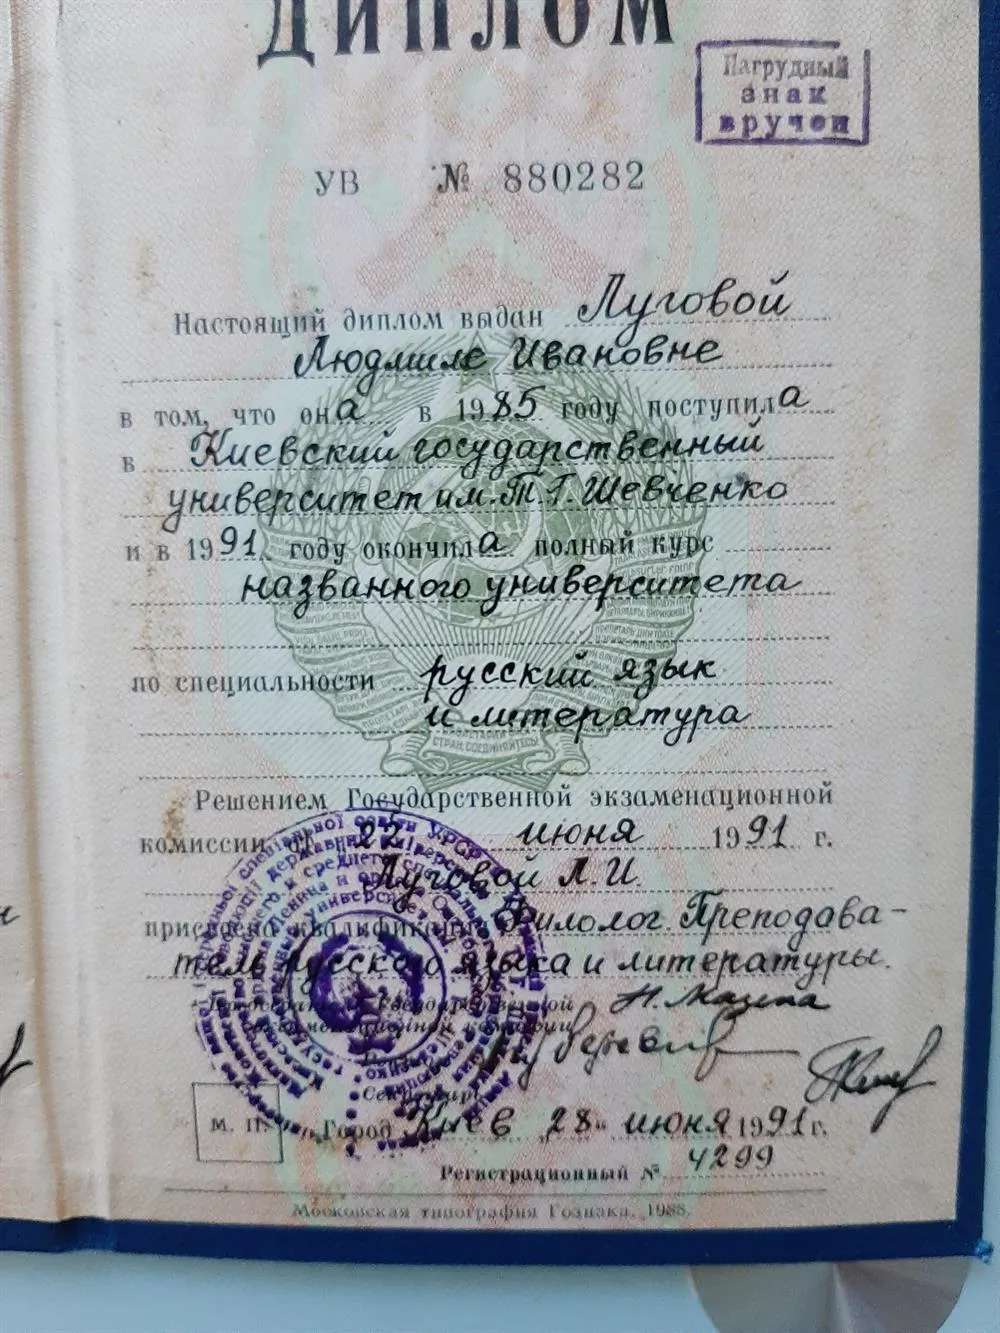 ДИПЛОМ
Нагрудный
знак
вручен
УВ № 880282
Настоящий диплом выдан Луговой
Людмиле Ивановне
в том, что она в 1985 году поступила
в Киевский государственный
университет им. Т.Г. Шевченко
и в 1991 году окончила полный курс
названного университета
по специальности русский язык
и литература
Решением Государственной экзаменационной
комиссии от 22 июня 1991 г.
Луговой Л.И.
присвоена квалификация Филолог. Преподава-
тель русского языка и литературы.
Председатель Государственной
экзаменационной комиссии
Секретарь
М. П. Город Киев "28" июня 1991 г.
Регистрационный № 4299
Московская типография Гознака. 1988.